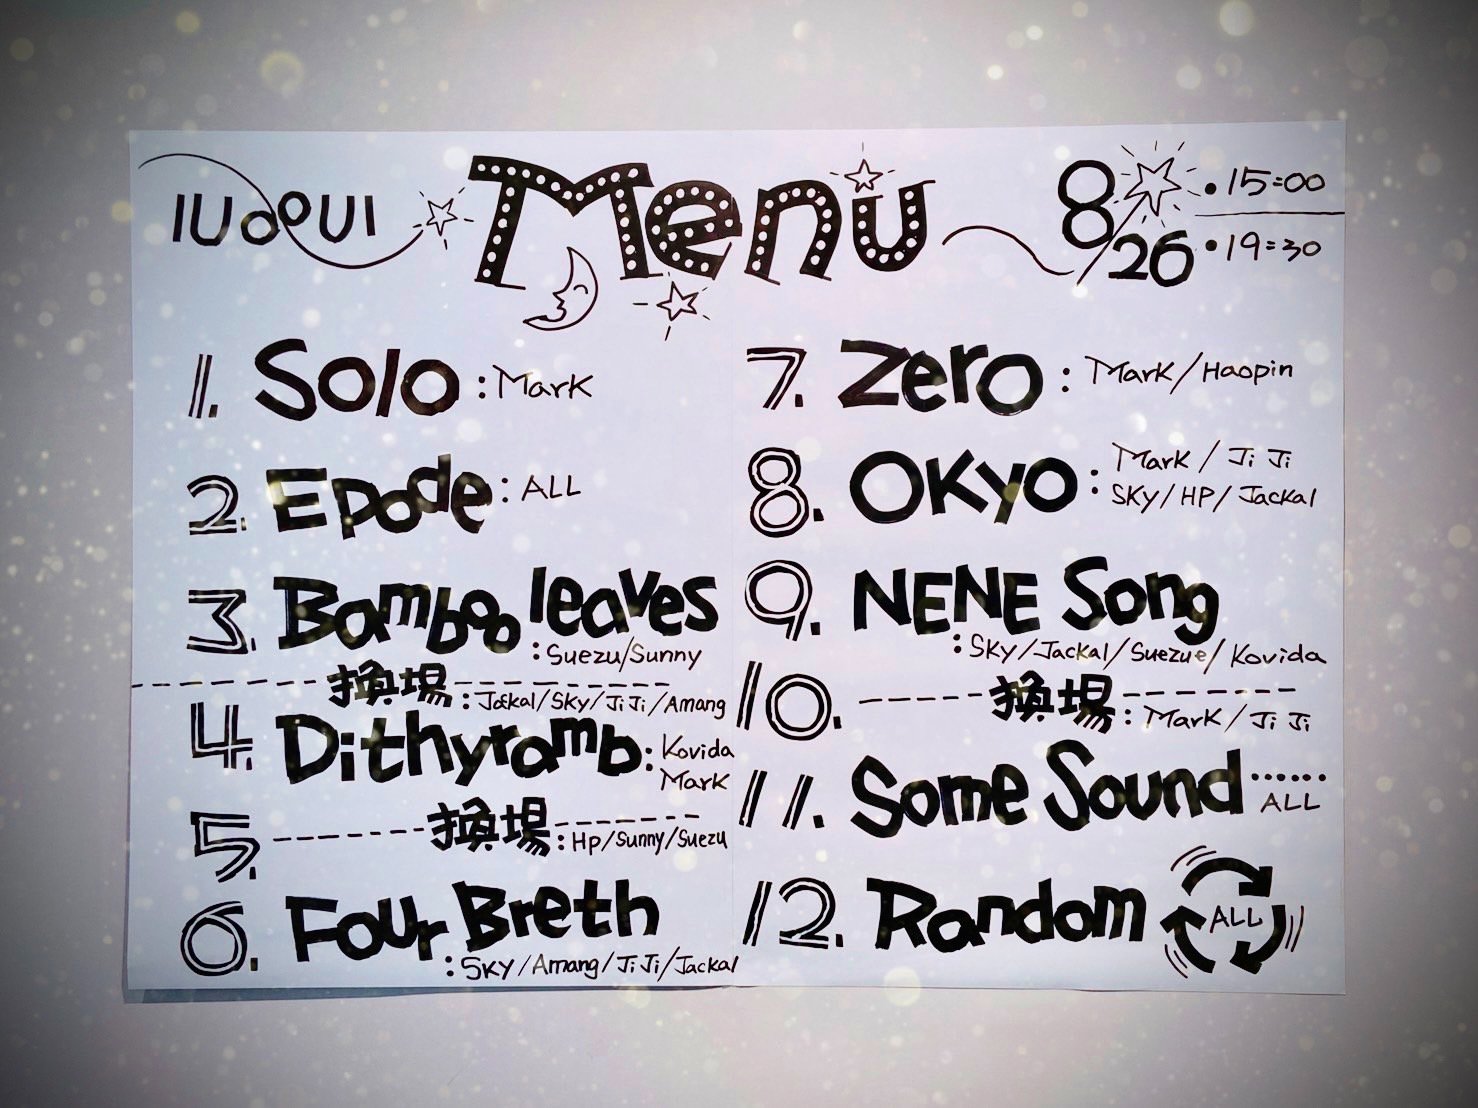 IUoOUI
Menu
8/26
•15:00
•19:30
1. Solo : Mark
2. Epode : ALL
3. Bamboo leaves
: Suezu/Sunny
換場 : Jackal/Sky/JiJi/Amang
4. Dithyramb : Kovida
Mark
5. 換場 : Hp/Sunny/Suezu
6. Four Breth
: Sky/Amang/JiJi/Jackal
7. Zero : Mark/Haopin
8. Okyo : Mark/Ji Ji
Sky/HP/Jackal
9. NENE Song
: Sky/Jackal/Suezue/Kovida
10. 換場 : Mark/Ji Ji
11. Some Sound ......
ALL
12. Random ALL